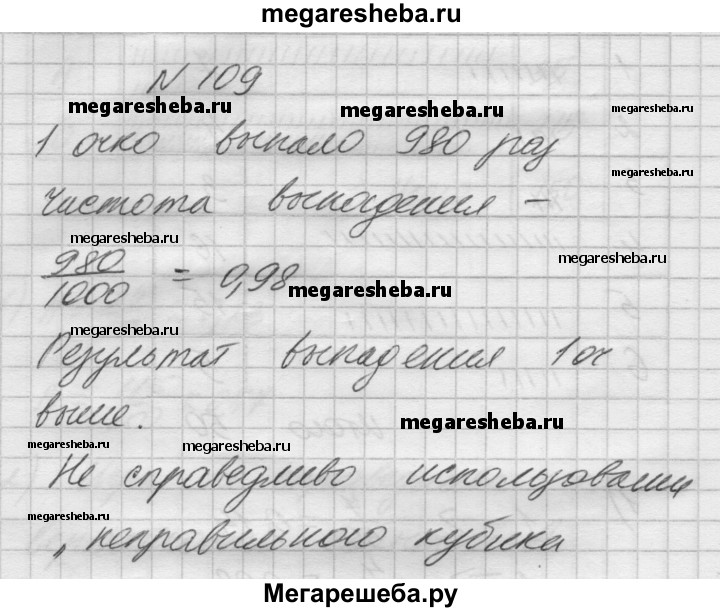 megaresheba.ru
N 109
megaresheba.ru megaresheba.ru megaresheba.ru
1 очко выпало 980 раз
megaresheba.ru
Чистота выпадения –
megaresheba.ru megaresheba.ru
980/1000 = 0,98
megaresheba.ru
megaresheba.ru megaresheba.ru
Результат выпадения 1 оч
выше.
megaresheba.ru
megaresheba.ru megaresheba.ru
Не справедливо использование
megaresheba.ru megaresheba.ru
„ неправильного кубика
Мегарешеба.ру